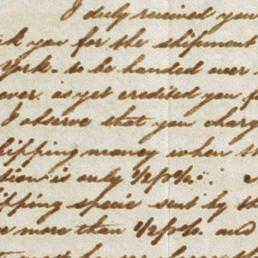 I duly received your
you for the shipment
York. to be handed over
ever as yet credited you f
I observe that you charg
hipping money when th
tion is only 1/2 p%.
ipping specie sent by th
more than 1/2 p%. and